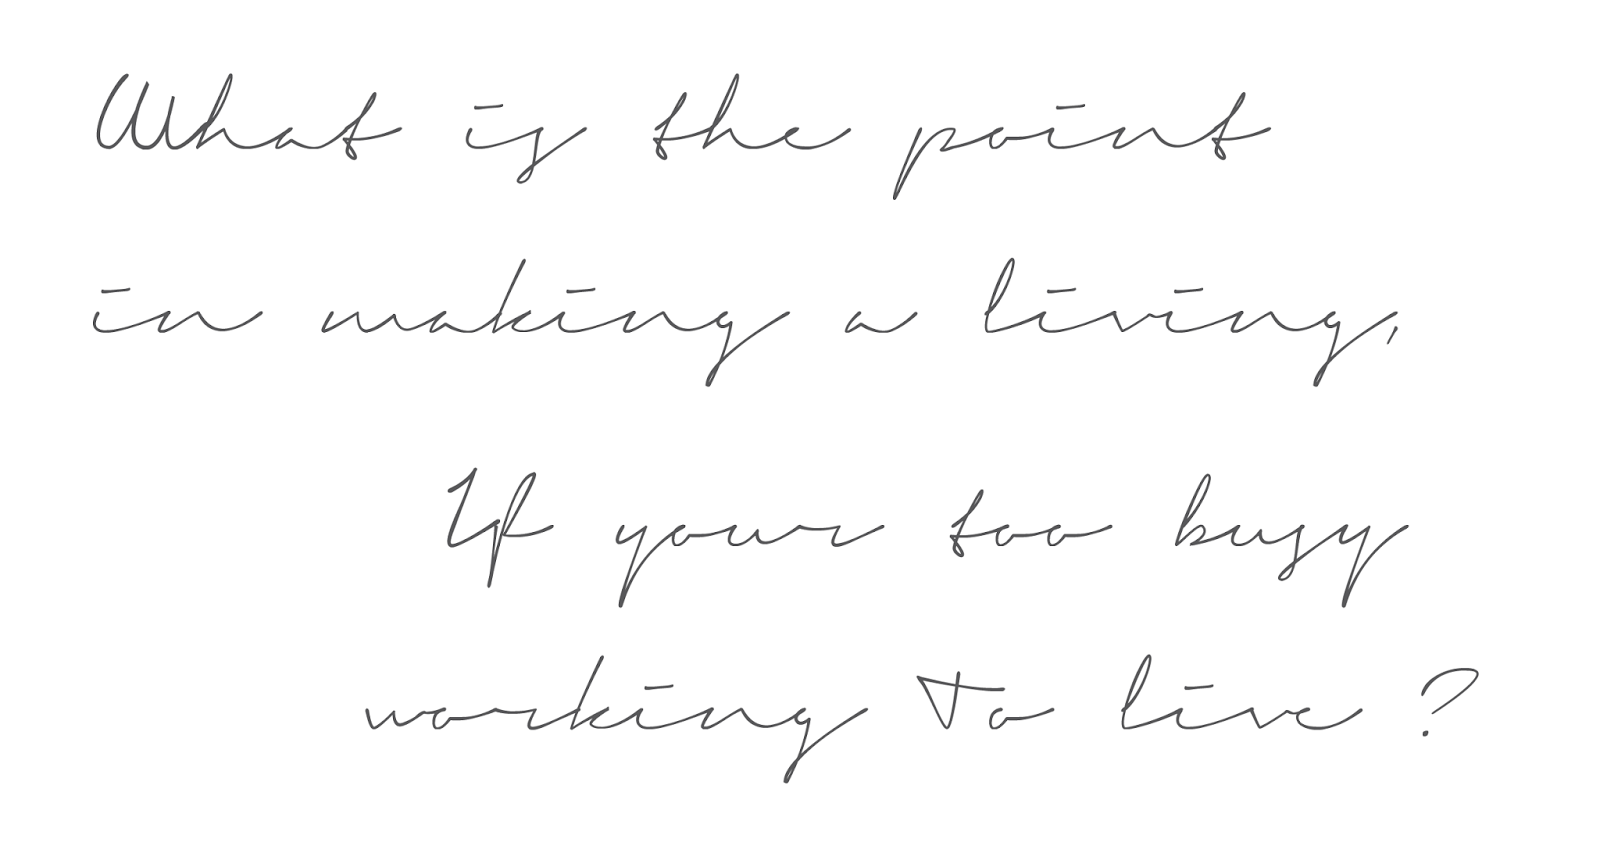 What is the point
in making a living,
If your too busy
working To live ?